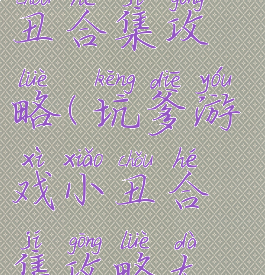 chǒu hé jí gōng
丑合集攻
lüè kēng diē yóu
略(坑爹游
xì xiǎo chǒu hé
戏小丑合
jí gōng lüè dà
集攻略大